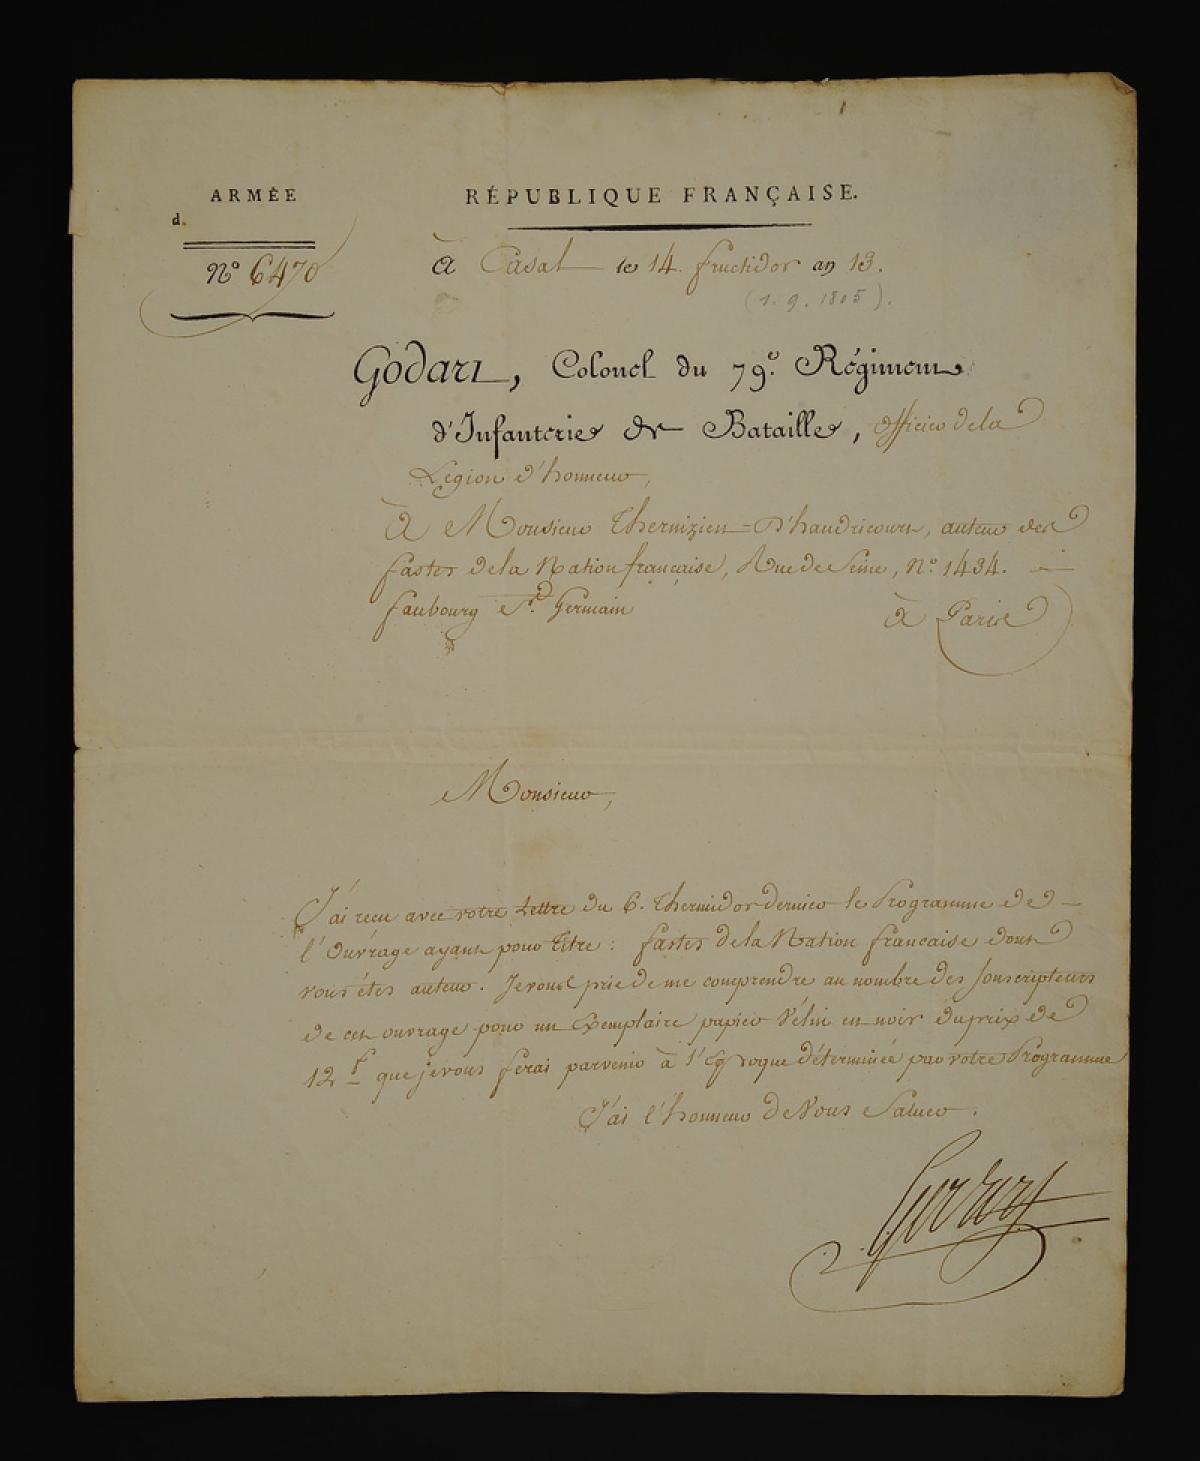 ARMÉE
d.
N.º 6470
RÉPUBLIQUE FRANÇAISE.
à Casal le 14. fructidor an 13.
(1. 9. 1805).
Godart, Colonel du 79.e Régiment
d'Infanterie de Bataille, officier de la
Légion d'honneur,
À Monsieur Thernizien=D'haudricourt, auteur des
fastes de la Nation française, Rue de Seine, N.º 1434.
faubourg St. Germain à Paris
Monsieur,
J'ai reçu avec votre Lettre du 6. Thermidor dernier le Programme de
l'Ouvrage ayant pour Titre : fastes de la Nation francaise dont
vous étes auteur. Je vous prie de me comprendre au nombre des Souscripteurs
de cet ouvrage pour un Exemplaire papier Vélin en noir du prix de
12 f que je vous ferai parvenir à l'Epoque déterminée par votre Programme
J'ai l'honneur de Vous Saluer.
Godart